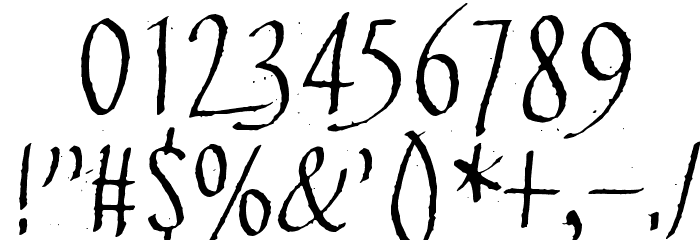 0123456789
!"#$%&'()*+,-./